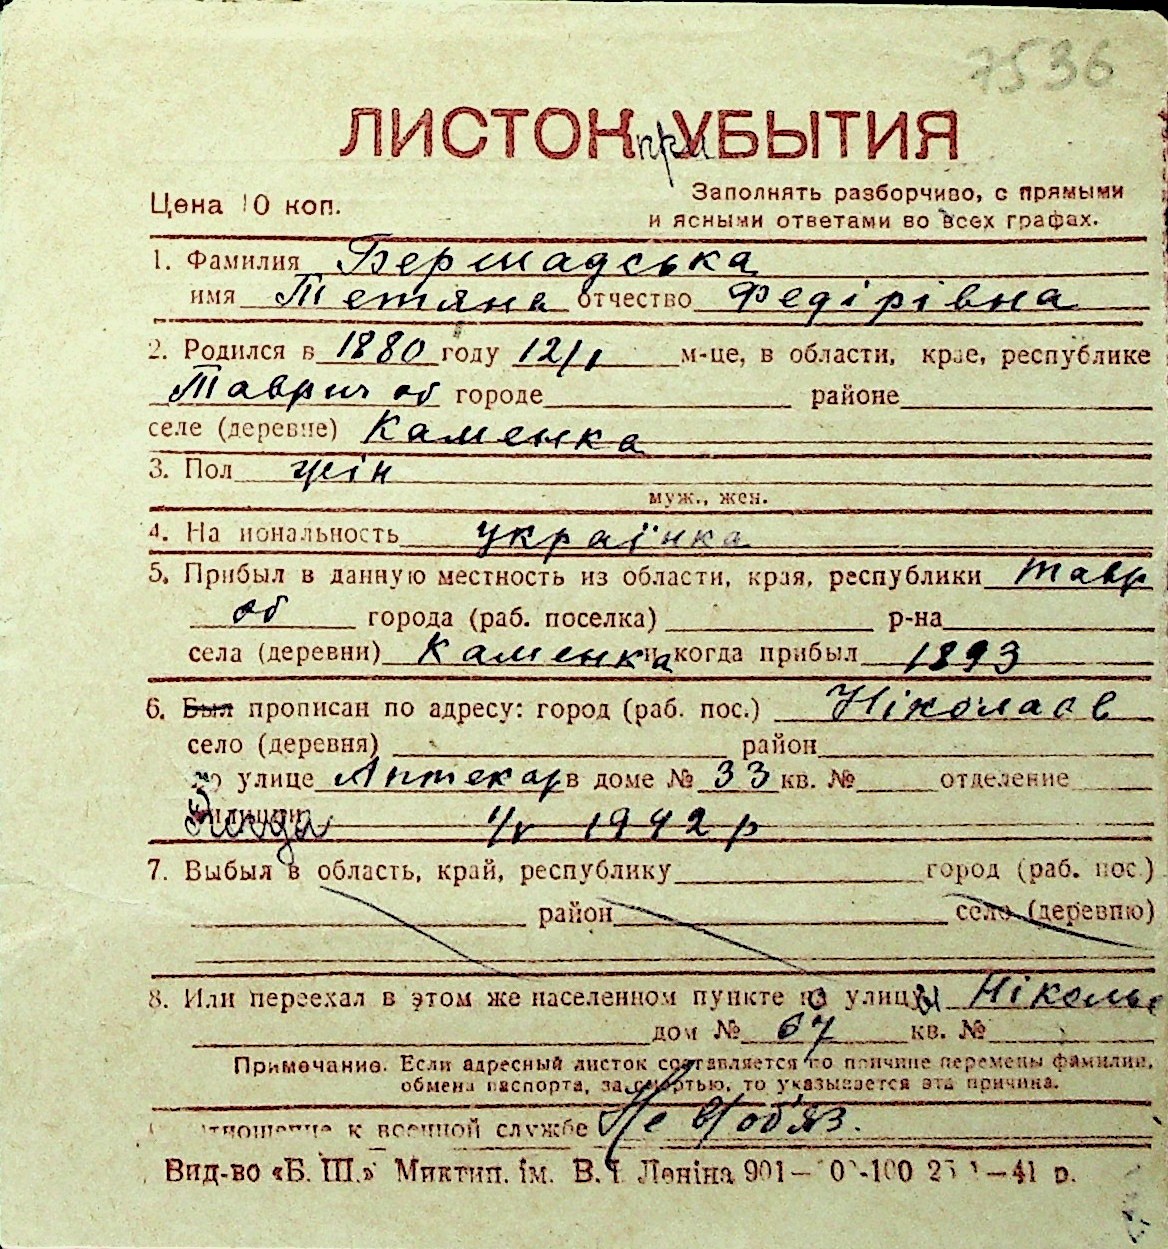 7536
ЛИСТОК при УБЫТИЯ
Цена 10 коп.
Заполнять разборчиво, с прямыми
и ясными ответами во всех графах.
1. Фамилия Бершадська
имя Тетяна отчество Федірівна
2. Родился в 1880 году 12/I м-це, в области, крае, республике
Таврич об городе районе
селе (деревне) Каменка
3. Пол жін
муж., жен.
4. На иональность українка
5. Прибыл в данную местность из области, края, республики Тавр
об города (раб. поселка) р-на
села (деревни) Каменка и когда прибыл 1893
6. Был прописан по адресу: город (раб. пос.) Ніколаєв
село (деревня) район
по улице Аптекар в доме № 33 кв. № отделение
милиции Когда 1/V 1942 р
7. Выбыл в область, край, республику город (раб. пос.)
район село (деревню)
8. Или переехал в этом же населенном пункте улицы Нікольс
дом № 67 кв. №
Примечание. Если адресный листок составляется по причине перемены фамилии,
обмена паспорта, за смертью, то указывается эта причина.
отношение к военной службе Не в/об'яз.
Вид-во «Б. Ш.» Миктип. ім. В. І. Леніна 901— -100 —41 р.